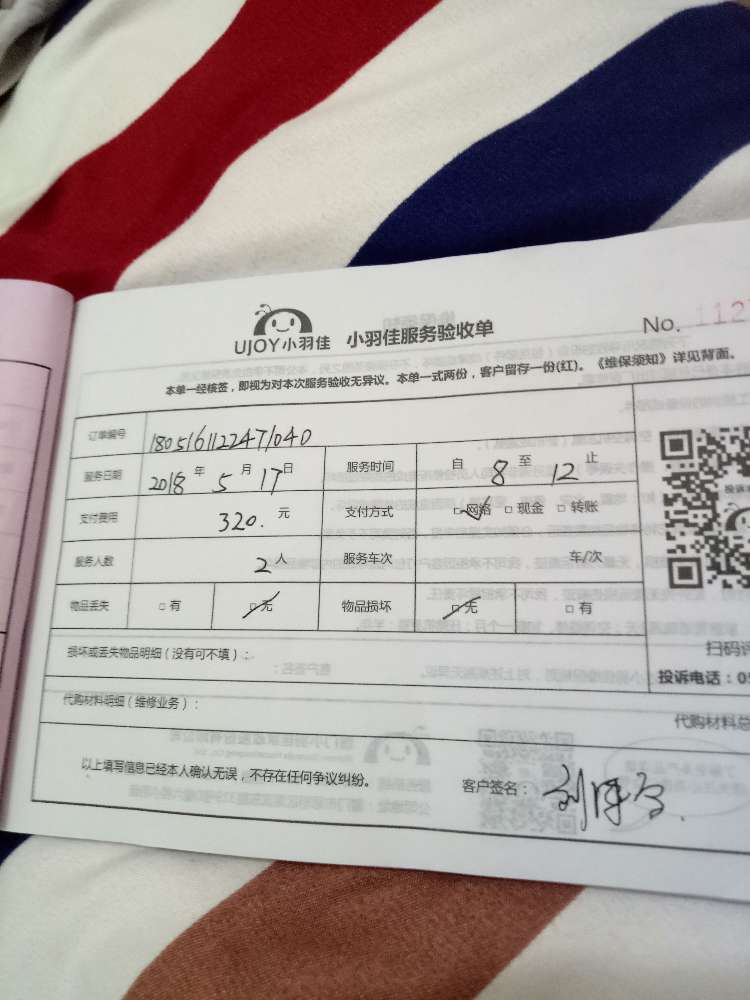 UJOY小羽佳 小羽佳服务验收单 No. 112
本单一经核签，即视为对本次服务验收无异议。本单一式两份，客户留存一份(红)。《维保须知》详见背面。
订单编号 1805161122471040
服务日期 2018 年 5 月 17 日 服务时间 自 8 至 12 止
支付费用 320. 元 支付方式 □网络 □现金 □转账
服务人数 2 人 服务车次 车/次
物品丢失 □有 □无 物品损坏 □无 □有
损坏或丢失物品明细（没有可不填）：
扫码评
投诉电话：05
代购材料明细（维修业务）：
代购材料总
以上填写信息已经本人确认无误，不存在任何争议纠纷。 客户签名：